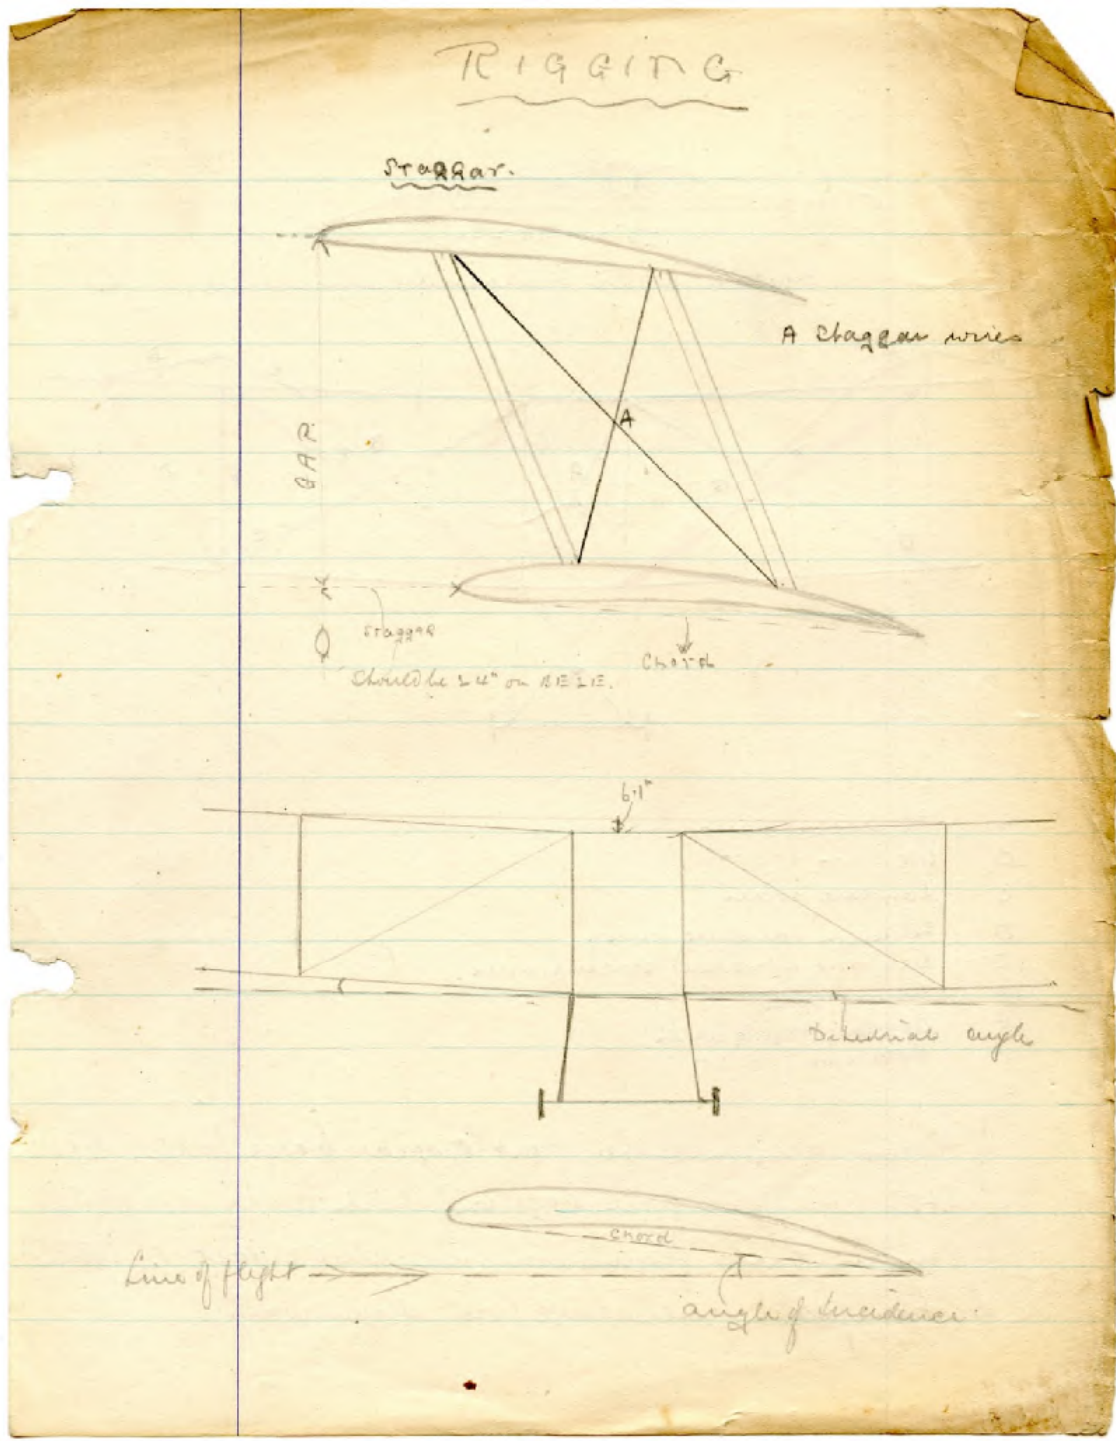 RIGGING
Staggar.
A Staggar wires
A
GAP.
Staggar
Chord
Should be 24" on BE2E.
6.1"
Dihedrial angle
Chord
Line of flight
angle of Incidence.